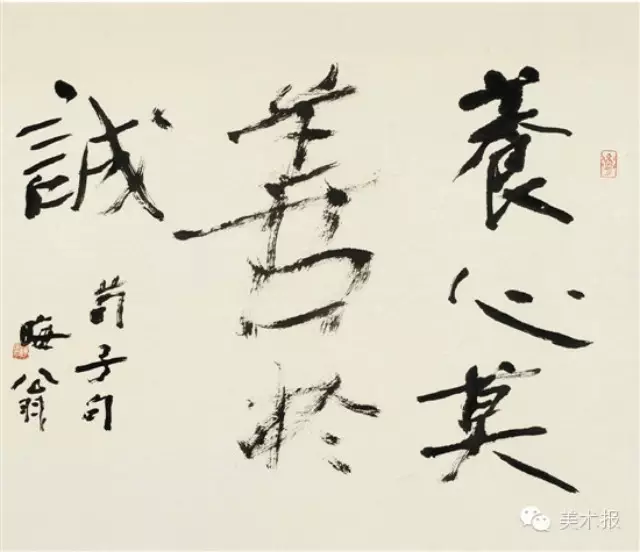 養心莫
善於
誠
荀子句
晦翁
美术报